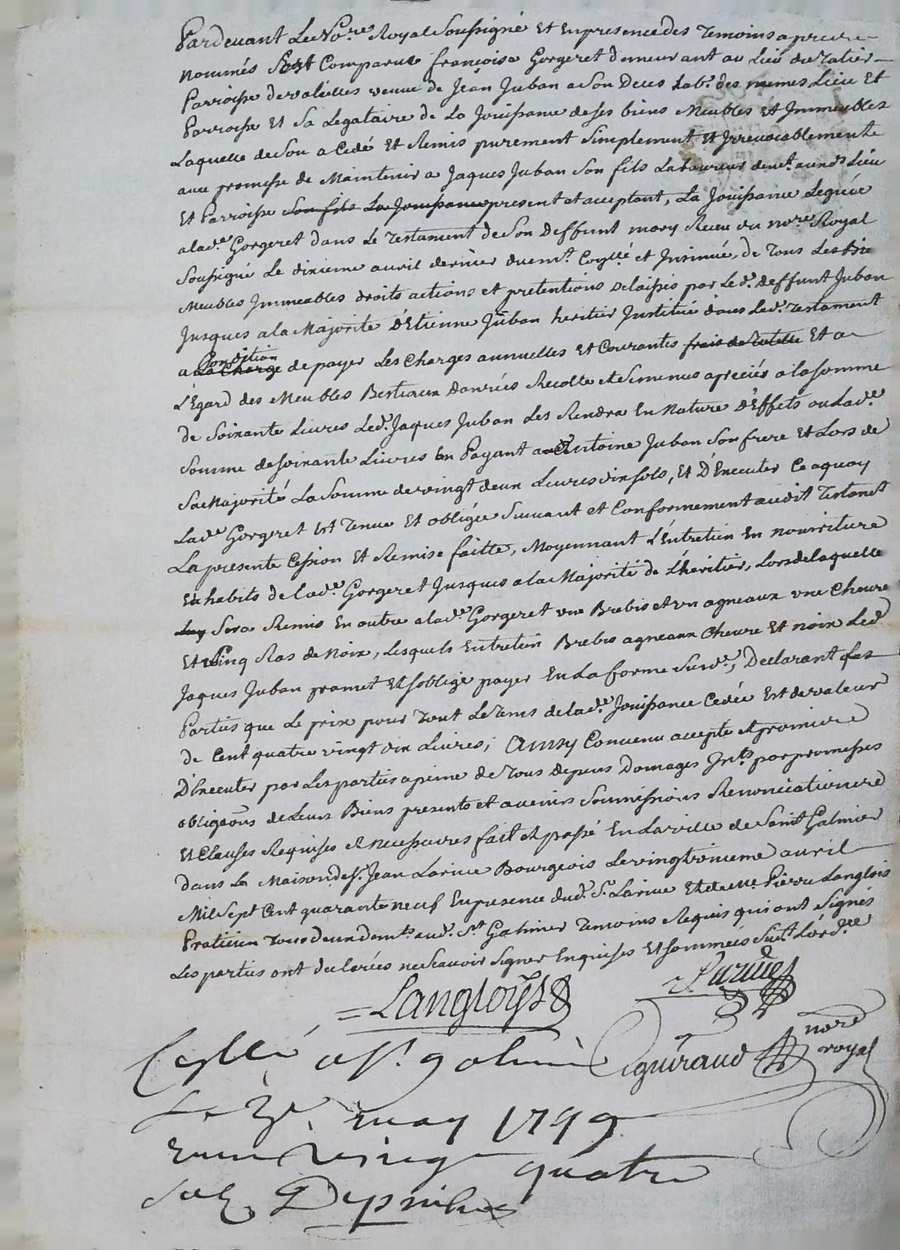 Pardevant Le No.re Royal Soussigné Et En presence Des Temoins apres
nommés Est Comparue françoise Gorgeret demeurant au Lieu du Ratier
Parroisse de valeilles veuve de Jean Juban a Son Deces Lab.r des memes Lieu Et
Parroisse Et Sa Legataire de La Jouissance de ses biens Meubles Et Immeubles
Laquelle de Son a Cedé Et Remis purement Simplement Et Irrevocablement
avec promesse de Maintenir a Jaques Juban Son fils Laboureur dem.t aud. Lieu
Et Parroisse Son fils La Jouissance present et acceptant, La Jouissance Leguée
a lad.e Gorgeret dans Le Testament de Son Deffunt mary Receu du no.re Royal
Soussigné Le dixieme avril dernier duem.t Co.llé et Insinué, de Tous Les Bie
Meubles Immeubles droits actions et pretentions Delaissés par Led. deffunt Juban
Jusques a la Majorité D'Etienne Juban heritier Institué dans Led. Testament
Condition
a La Charge de payer Les Charges annuelles Et Courantes frais de Et a
L'Egard des Meubles Bestiaux Danrées Recolte et Semences apreciés a la Somme
de Soixante Livres Led. Jaques Juban Les Rendra En Nature D'Effets ou Lad.e
Somme de Soixante Livres En Payant a Antoine Juban Son frere Et Lors de
Sa Majorité La Somme de vingt deux Livres dix Sols, Et D'Executer Ce a quoy
Lad.e Gorgeret Est Tenue Et obligée Suivant et Conformement audit Testam.t
La presente Cession Et Remise faitte, Moyennant L'Entretien En nourriture
Et habits de lad.e Gorgeret Jusques a la Majorité de L'heritier, Lors de laquelle
Luy Sera Remis En outre a lad.e Gorgeret une Brebis et un agneaux une Chevre
Et Cinq Ras de Noix, Lesquels Entretien Brebis agneaux Chevre Et noix Led.
Jaques Juban promet Et s'oblige payer En La forme Susd.e, Declarant Les
Parties que Le prix pour Tout Le Tems de lad.e Jouissance Cedée Est de valeur
de Cent quatre vingt dix Livres; Ainsy Convenu accepté et promis
D'Executer par Les parties a peine de Tous Depens Domages Int.ts par promesses
obligaons de Leurs Biens presents et avenirs Soumissions Renonciations
Et Clauses Requises Et necessaires fait et passé En La ville de Saint Galmier
dans La Maison de S.r Jean Larive Bourgeois Le vingt neuvieme avril
Mil Sept Cent quarante neuf En presence dud. S.r Larive Et de M.e Pierre Langlois
Praticien Tous deux dem.ts aud. St Galmier Temoins Requis qui ont Signés
Les parties ont declarées ne Scavoir Signer Enquises Et Sommées Suiv.t L'ord.re
= Langloys
Larive
guiraud no.re royal
Co.llé a St. galmier
Le 3e may 1749
Reçu vingt quatre
sols Depinhe